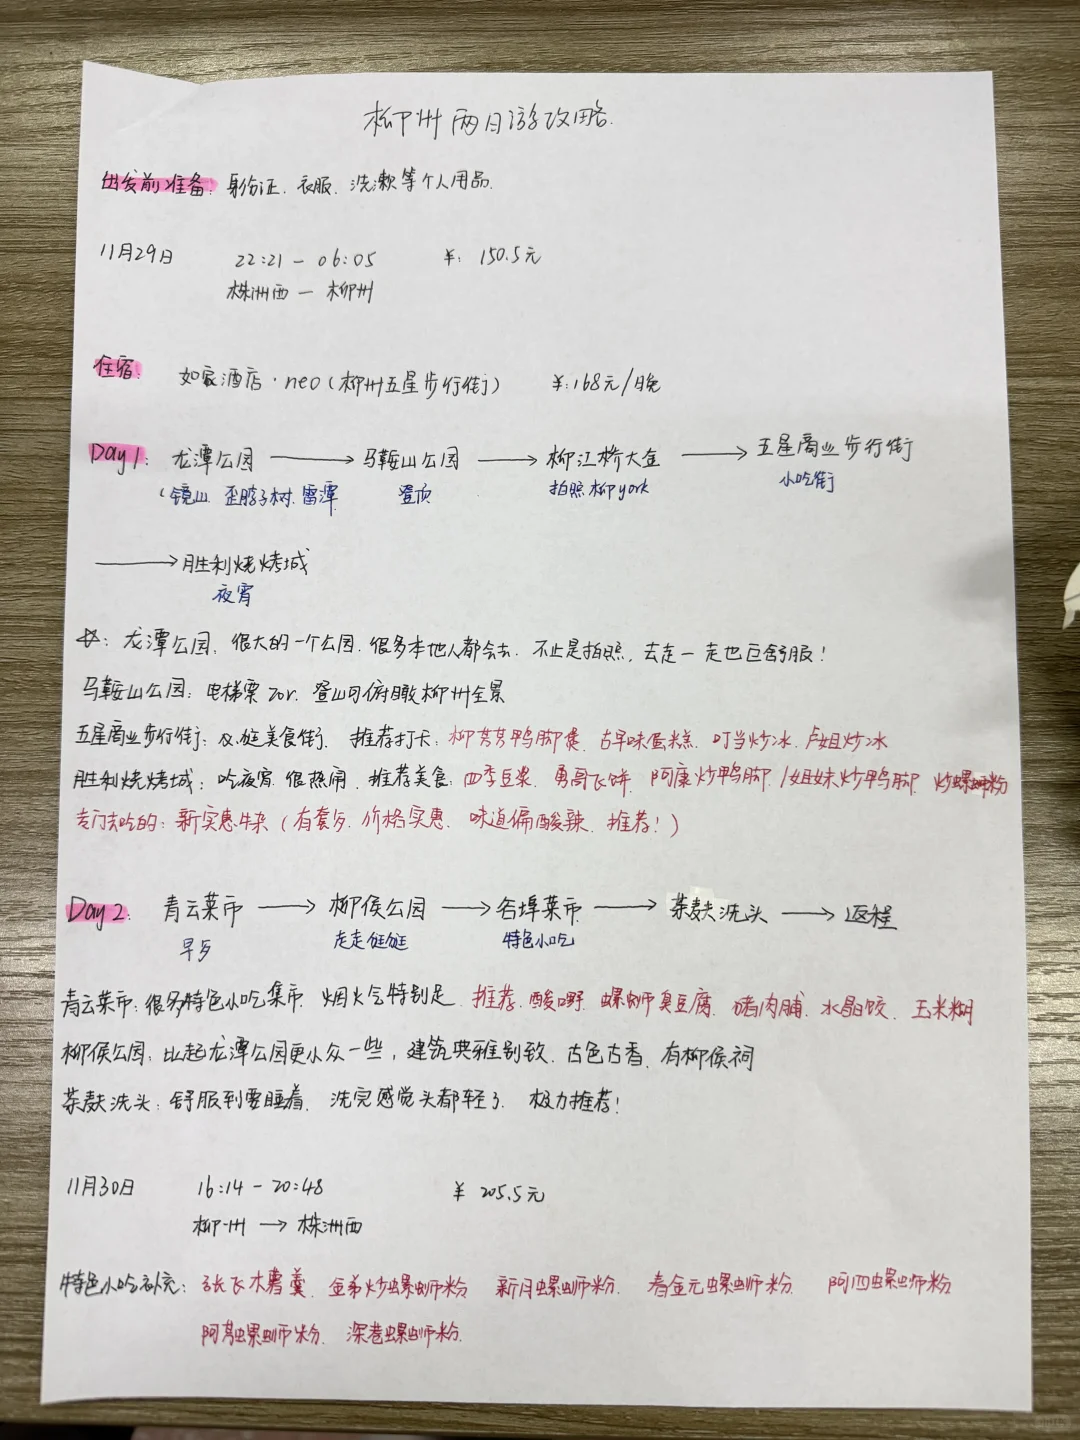 柳州两日游攻略.
出发前准备: 身份证、衣服、洗漱等个人用品.
11月29日 22:21 — 06:05 ¥: 150.5元
株洲西 — 柳州
住宿: 如家酒店·neo(柳州五星步行街) ¥:168元/晚
Day1: 龙潭公园 → 马鞍山公园 → 柳江桥大金 → 五星商业步行街
(镜山 歪脖子树. 雷潭 登顶 拍照 柳york 小吃街
→ 胜利烧烤城
夜宵
☆: 龙潭公园、很大的一个公园. 很多本地人都会去. 不止是拍照, 去走一走也巨舒服!
马鞍山公园: 电梯票20r. 登山可俯瞰柳州全景
五星商业步行街: 必逛美食街. 推荐打卡: 柳芳芳鸭脚煲、古早味蛋糕、叮当炒冰、卢姐炒冰
胜利烧烤城: 吃夜宵 很热闹. 推荐美食: 四季豆浆、勇哥飞饼、阿康炒鸭脚、姐妹炒鸭脚、炒螺蛳粉
专门去吃的: 新实惠牛杂(有套餐、价格实惠、味道偏酸辣、推荐!)
Day2: 青云菜市 → 柳侯公园 → 谷埠菜市 → 茶麸洗头 → 返程
早餐 走走逛逛 特色小吃
青云菜市: 很多特色小吃集市. 烟火气特别足. 推荐. 酸嘢. 螺蛳臭豆腐、猪肉脯、水晶饺、玉米糊
柳侯公园: 比起龙潭公园更小众一些, 建筑典雅别致、古色古香、有柳侯祠
茶麸洗头: 舒服到要睡着. 洗完感觉头都轻了. 极力推荐!
11月30日 16:14 — 20:48 ¥ 205.5元
柳州 → 株洲西
特色小吃补充: 张飞木薯羹、金弟炒螺蛳粉 新月螺蛳粉. 春金元螺蛳粉. 阿四螺蛳粉
螺蛳粉. 深巷螺蛳粉.